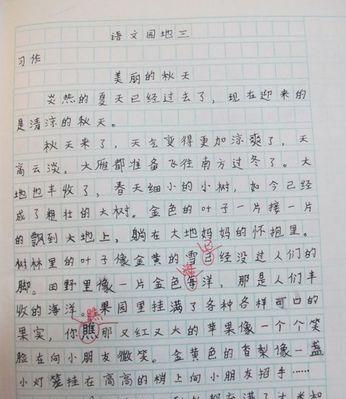 语文园地三
习作
美丽的秋天
炎热的夏天已经过去了，现在迎来的
是清凉的秋天。
秋天来了，天气变得更加凉爽了，天
高云淡，大雁都准备飞往南方过冬了。大
地也丰收了，春天细小的小树，如今已经
成了粗壮的大树。金色的叶子一片接一片
的飘到大地上，躺在大地妈妈的怀抱里。
树林里的叶子像金黄的雪已经没过人们的
脚。田野里像一片金色海洋，那是人们丰
收的海洋。果园里挂满了各种各样可口的
果实，你瞧那又红又大的苹果像一个个笑
脸在向小朋友微笑。金黄色的香梨像一盏
小灯笼挂在高高的梢上向小朋友招手……